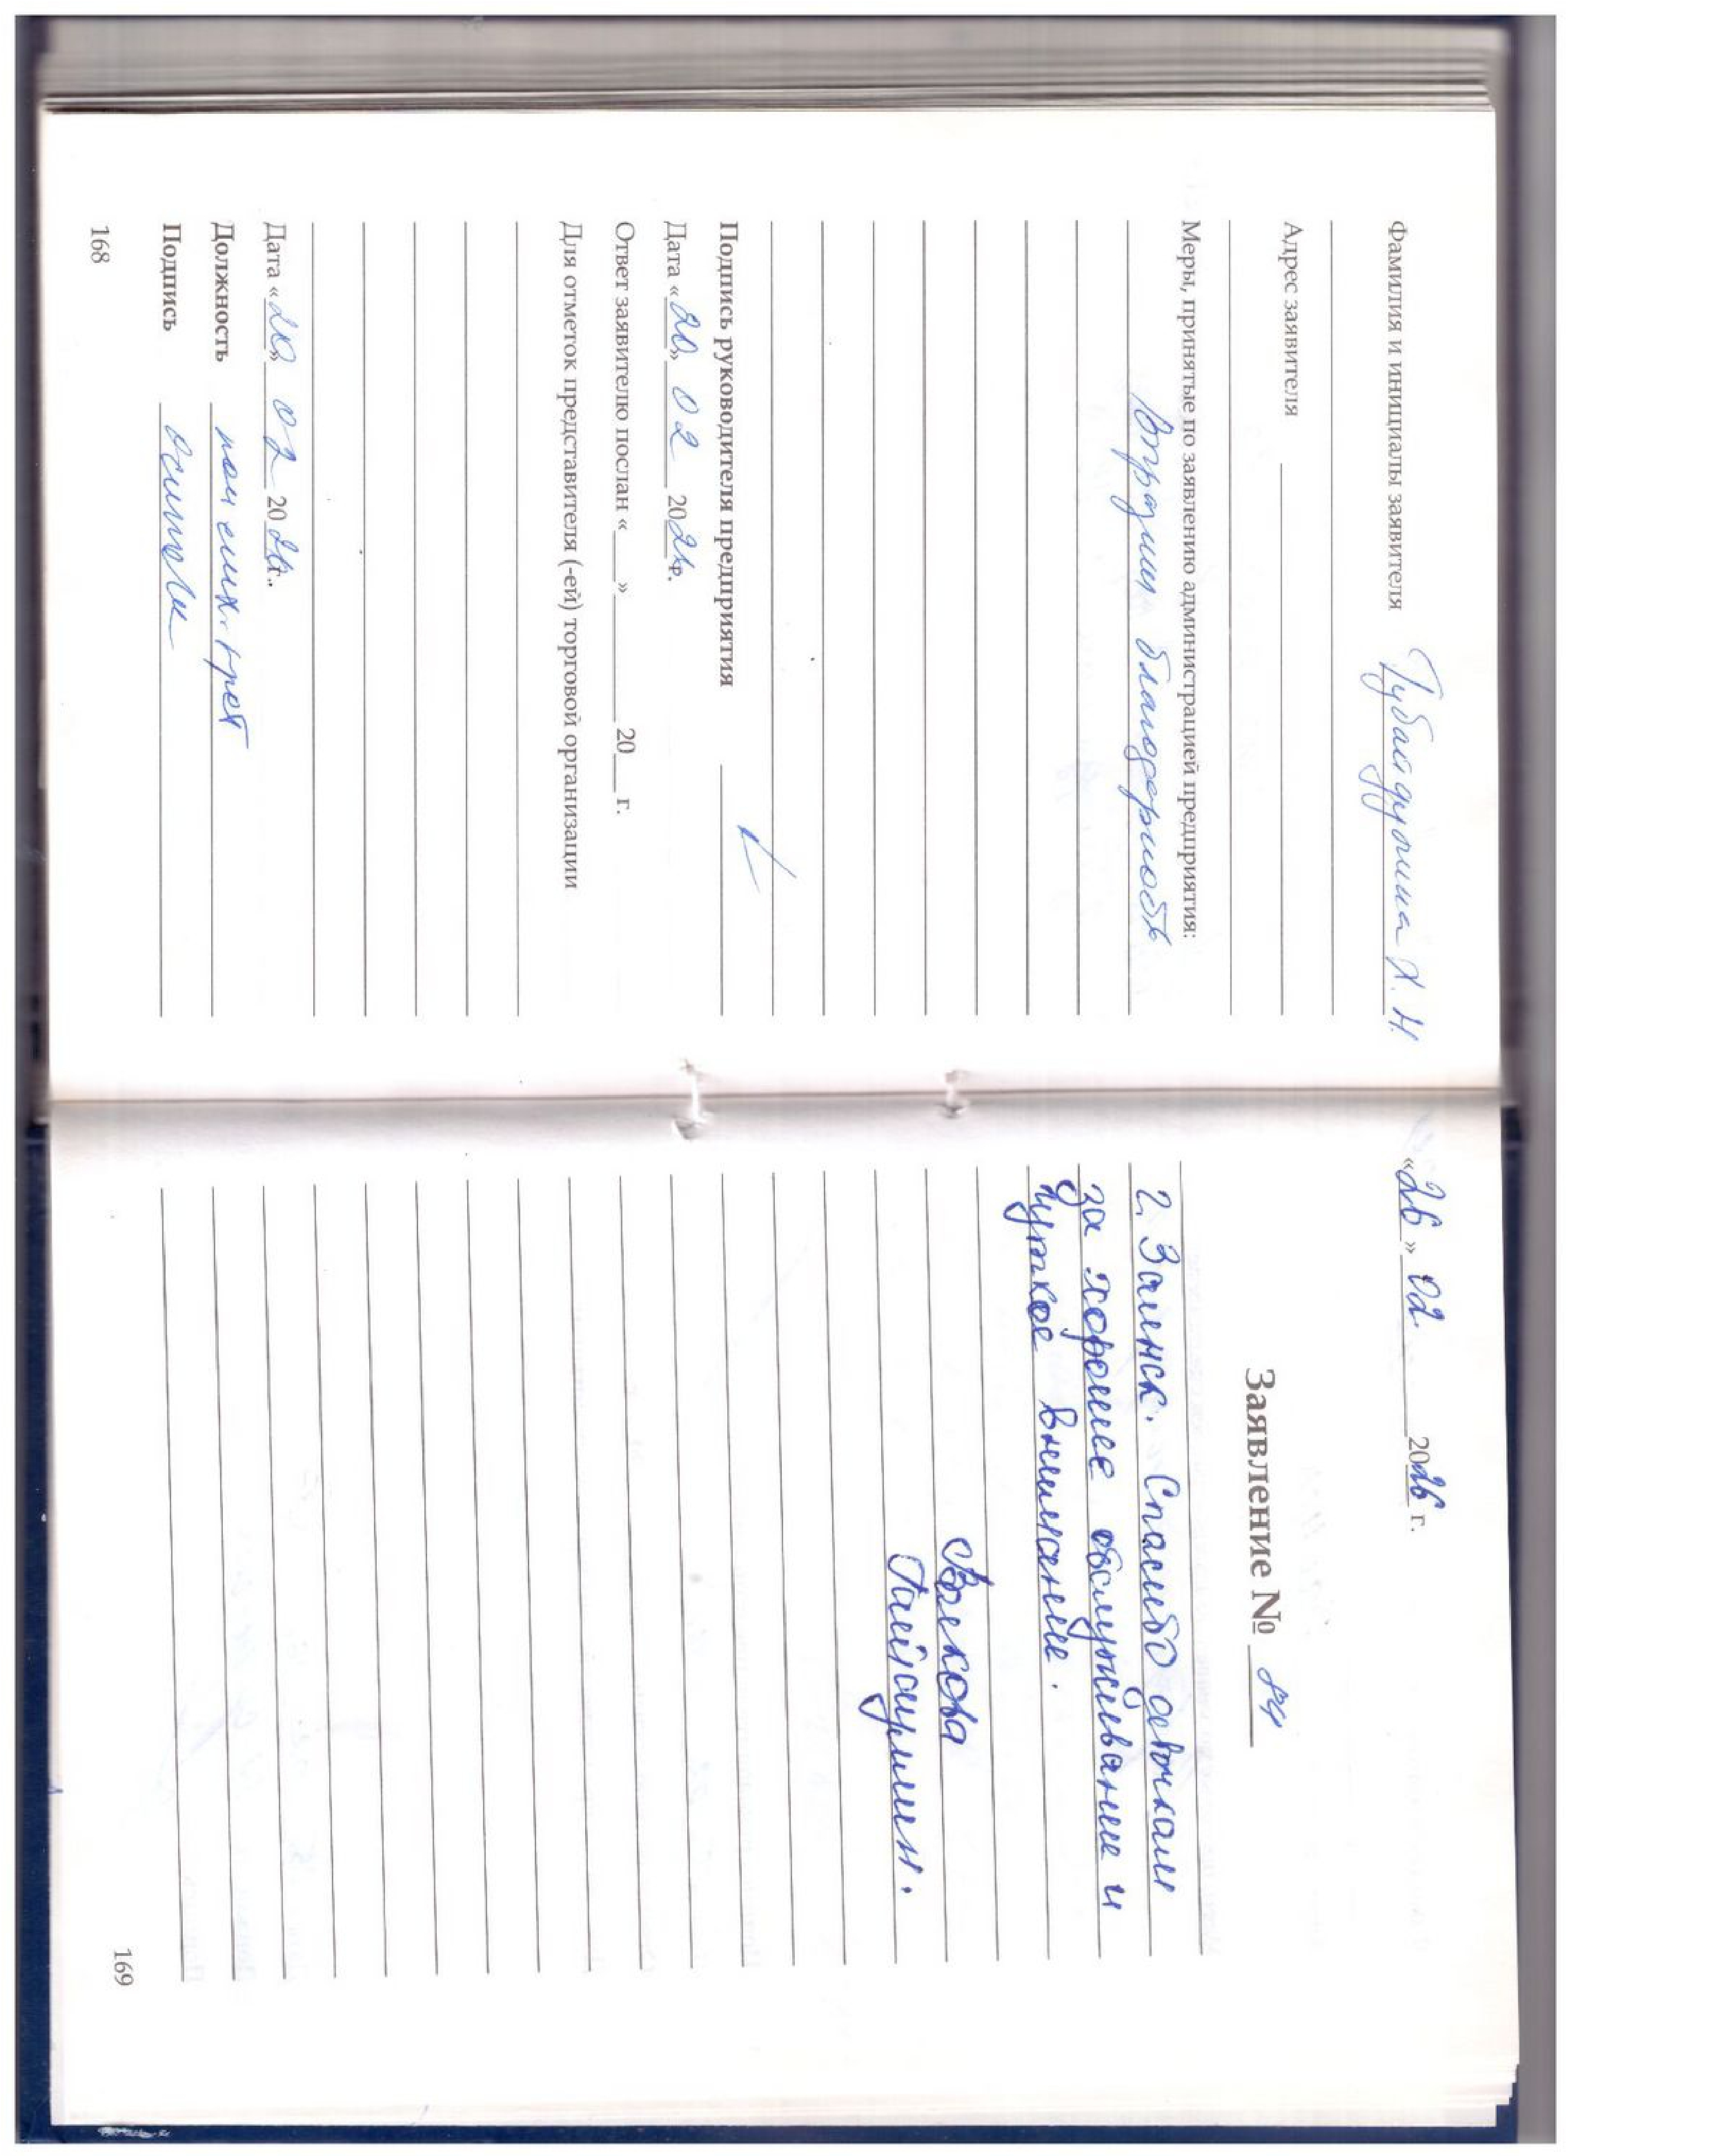 Фамилия и инициалы заявителя Губайдулина Х. Н.
Адрес заявителя
Меры, принятые по заявлению администрацией предприятия:
Выразили благодарность
Подпись руководителя предприятия
Дата «20» 02 20 г.
Ответ заявителю послан «___» ________ 20__ г.
Для отметок представителя (-ей) торговой организации
Дата «20» 02 20 г.
Должность
Подпись
168
«26» 02 2026 г.
Заявление № 84
г. Заинск. Спасибо девочкам
за хорошее обслуживание и
чуткое внимание.
Волкова
169